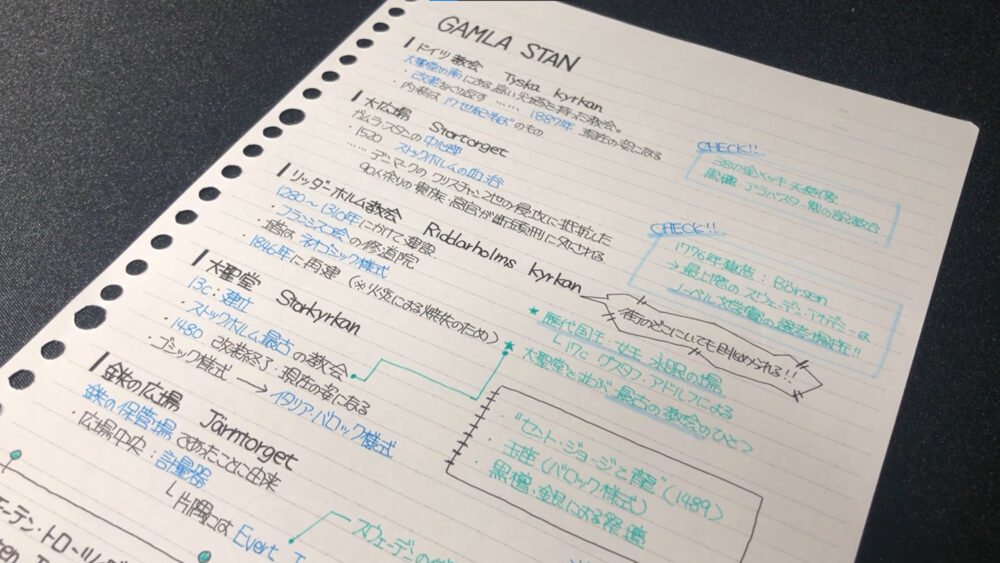 GAMLA STAN
ドイツ教会 Tyska kyrkan
大聖堂の南にある高い尖塔を持った教会。
・改築をくり返す …… 1887年 現在の姿になる
・内装は17世紀半ばのもの
CHECK!!
38の金メッキ天使像
黒檀・アラバスター製の説教台
大広場 Stortorget
ガムラ・スタンの中心部
・1520 ストックホルムの血浴
…… デンマークのクリスチャン2世の侵攻に抵抗した
90人余りの貴族・高官が断頭刑に処される
CHECK!!
1776年建造:Börsen
→最上階のスウェーデン・アカデミーは
ノーベル文学賞の選考場所!!
リッダーホルム教会 Riddarholms kyrkan
1280〜1310年にかけて建設
・フランシスコ会の修道院
・塔はネオゴシック様式
1846年に再建(※火災による焼失のため)
街のどこにいても目に留められる!!
★歴代国王・女王 永眠の場
L17c グスタフ・アドルフによる
大聖堂と並ぶ最古の教会のひとつ
大聖堂 Storkyrkan
13c:建立
・ストックホルム最古の教会
・1480 改装終了・現在の姿になる
・ゴシック様式→イタリア・バロック様式
・"セント・ジョージと龍"(1489)
・玉座(バロック様式)
・黒檀・銀による祭壇
鉄の広場 Järntorget
鉄の保管場であったことに由来
・広場中央:計量器
L片隅には Evert T
スウェーデンの
モーテン・トローツ